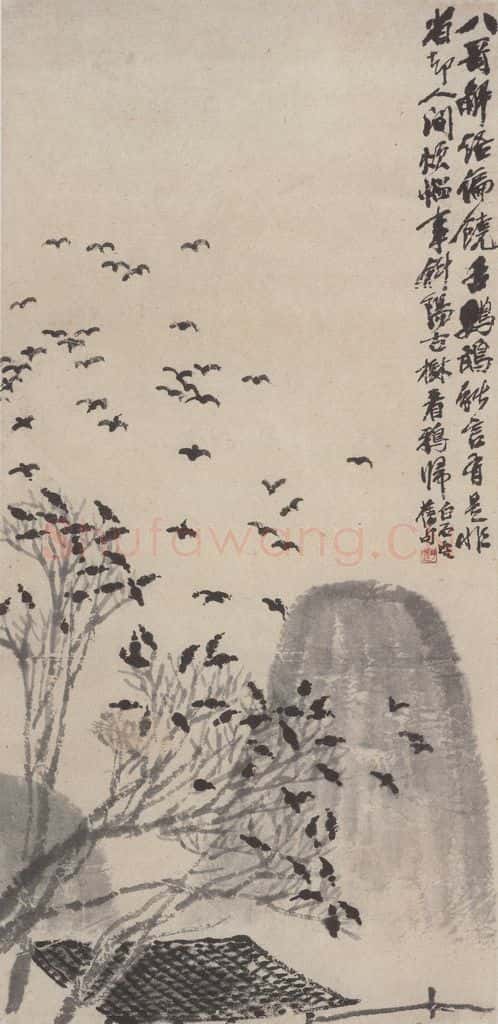 八哥解语偏饶舌鹦鹉能言有是非
省却人间烦恼事斜阳古树看鸦归
白石
旧句
shufawang.cn